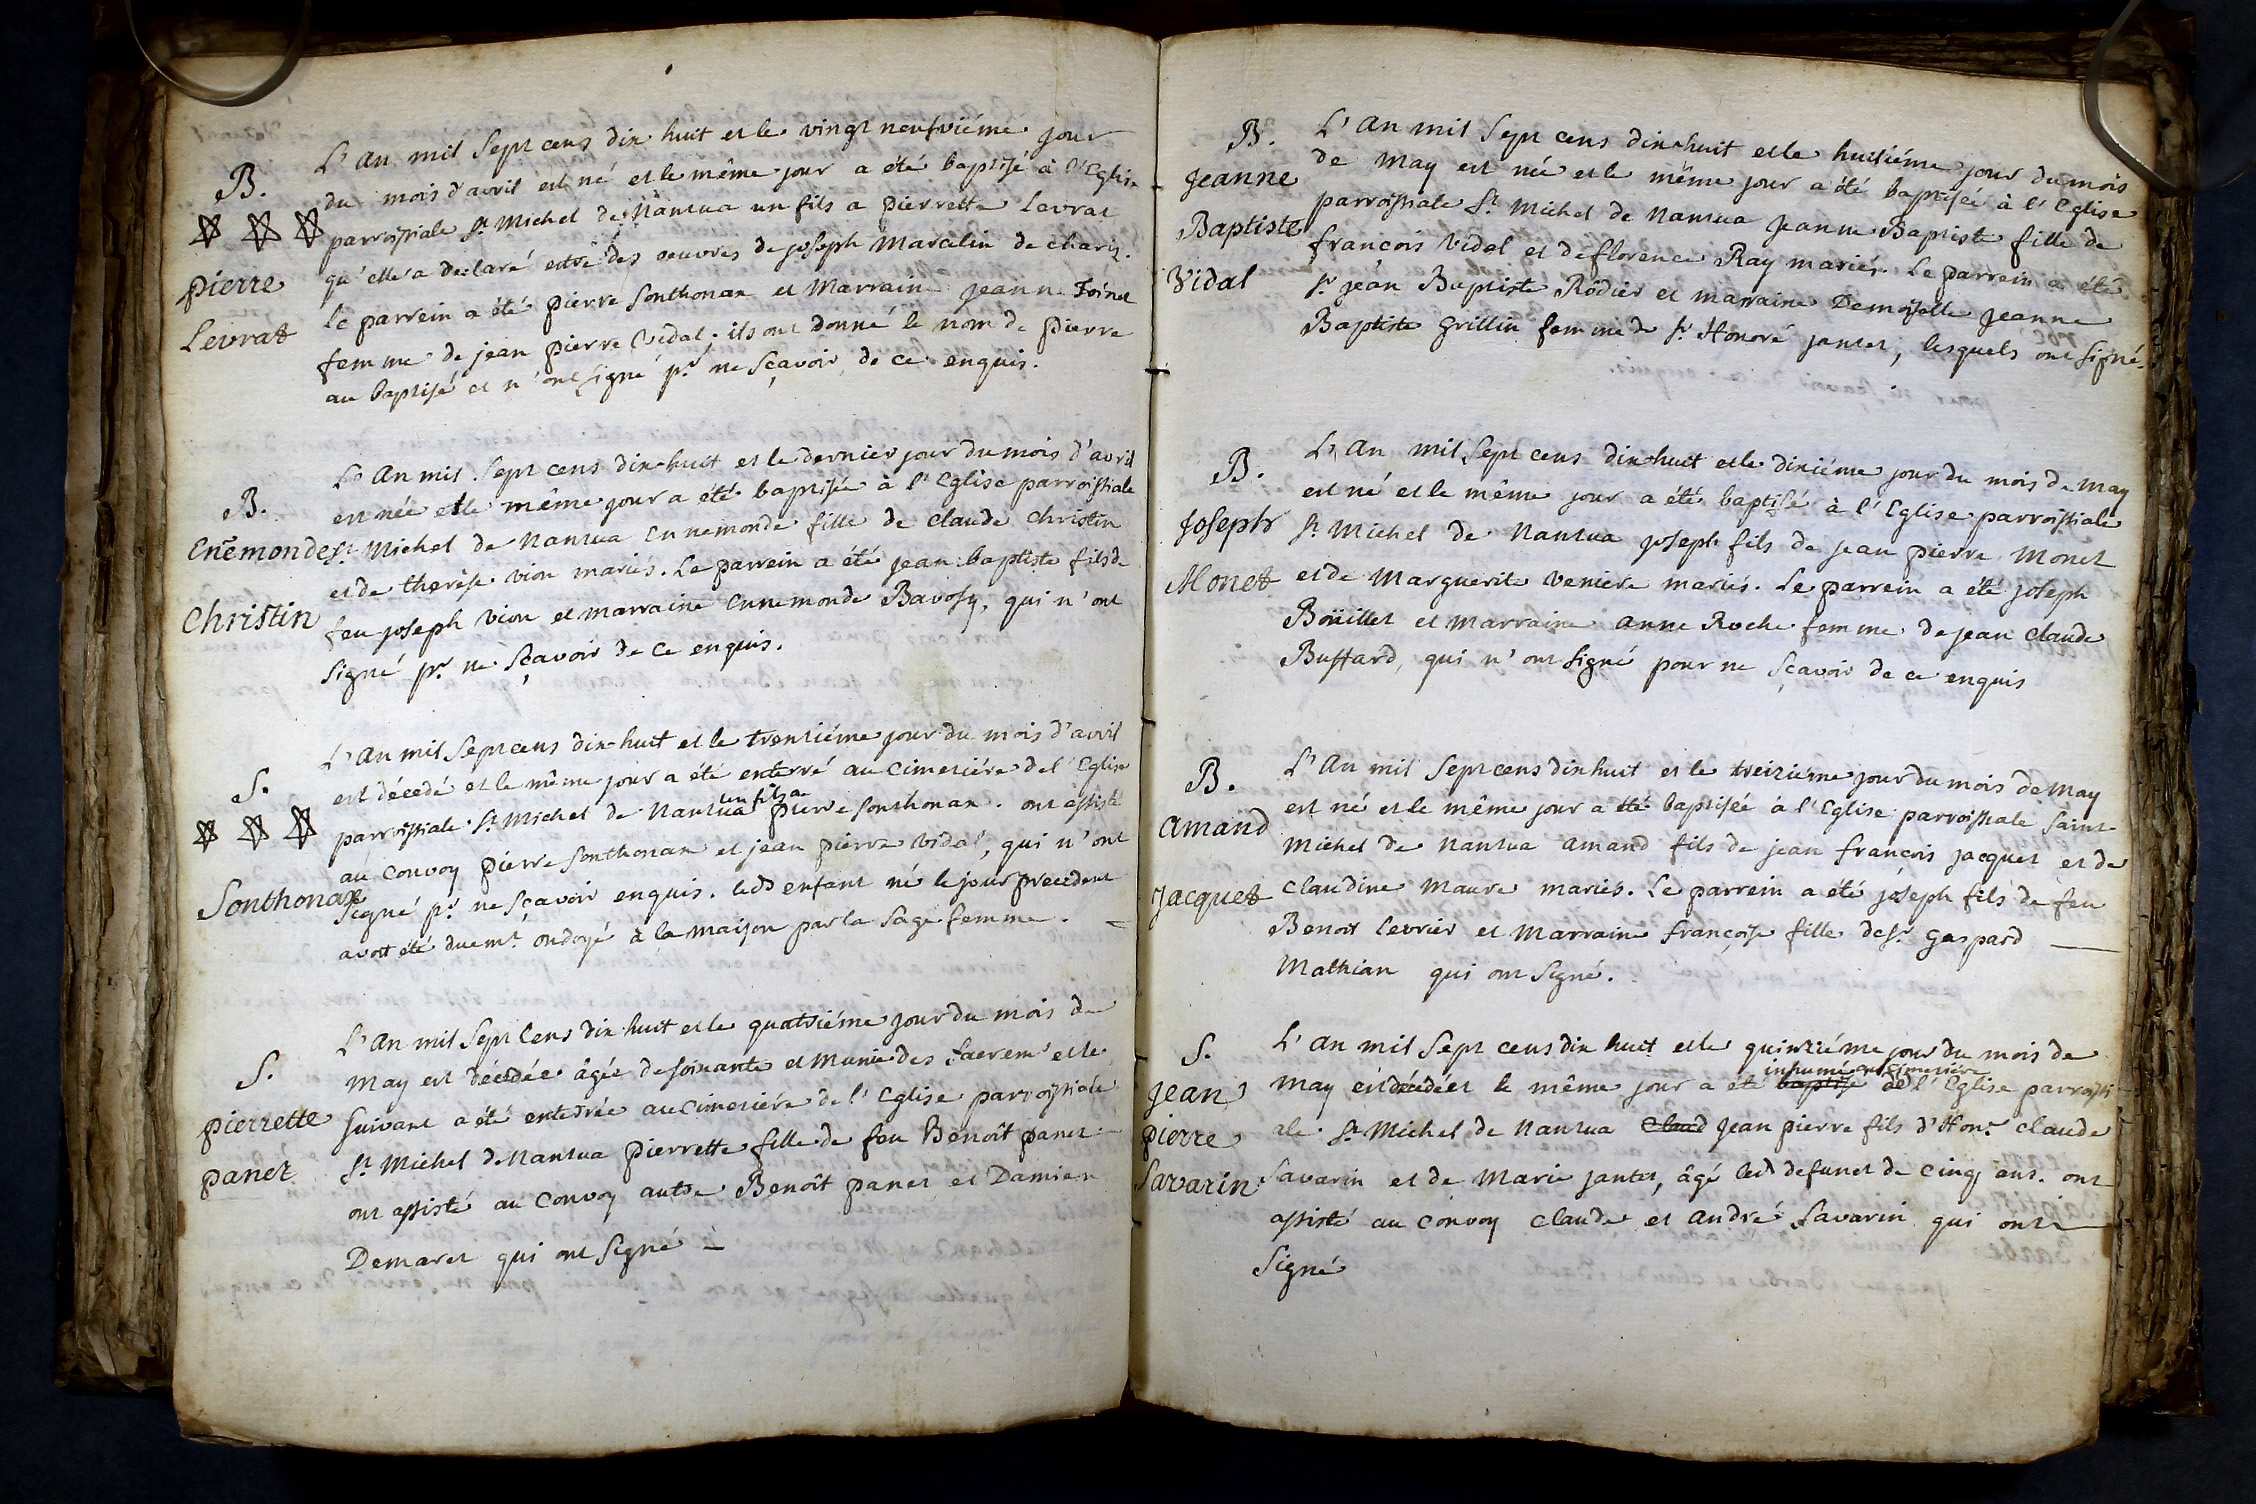 B.
pierre
Levrat
L'an mil Sept cens dix huit et le vingt neufviéme jour
du mois d'avril est né et le même jour a été baptisé à l'Eglise
parroissiale St Michel de Nantua un fils a pierrette Levrat
qu'elle a declaré estre des oeuvres de joseph Marcelin de charix.
Le parrein a été pierre Sonthonax et Marraine jeanne Toinet
femme de jean pierre Vidal; ils ont donné le nom de pierre
au baptisé et n'ont signé pr. ne sçavoir de ce enquis.
B.
Enemonde
Christin
L'An mil Sept cens dix-huit et le dernier jour du mois d'avril
est née et le même jour a été baptisée à l'Eglise parroissiale
St. Michel de Nantua Ennemonde fille de claude christin
et de therèse vion mariés. Le parrein a été jean baptiste fils de
feu joseph vion et marraine ennemonde Bavosy, qui n'ont
signé pr. ne sçavoir de ce enquis.
S.
Sonthonax
L'an mil Sept cens dix-huit et le trentiéme jour du mois d'avril
est décedé et le même jour a été enterré au cimetiére de l'Eglise
parroissiale St. Michel de Nantua un fils a pierre Sonthonax. ont assisté
au convoy pierre Sonthonax et jean pierre vidal, qui n'ont
signé pr. ne sçavoir enquis. led enfant né le jour precedent
avoit été duemt. ondoyé à la maison par la sage femme.
S.
pierrette
panet
L'An mil Sept Cens dix huit et le quatriéme jour du mois de
May est décedée âgée de soixante et munie des Sacremt et le
suivant a été enterrée au cimetiére de l'Eglise parroissiale
St. Michel de Nantua pierrette fille de feu Benoît panet
ont assisté au convoy autre Benoît panet et Damien
Demaret qui ont signé
B.
Jeanne
Baptiste
Vidal
L'An mil Sept cens dix-huit et le huitiéme jour du mois
de May est née et le même jour a été baptisée à l'Eglise
parroissiale St. Michel de Nantua Jeanne Baptiste fille de
francois vidal et de florence Ray mariés. Le parrein a été
Sr. jean Baptiste Rôdier et marraine Demoiselle Jeanne
Baptiste Grillin femme de Sr. Honoré jantet, lesquels ont signé.
B.
Joseph
Monet
L'An mil Sept cens dix-huit et le dixiéme jour du mois de May
est né et le même jour a été baptisé à l'Eglise parroissiale
St. Michel de Nantua joseph fils de jean pierre Monet
et de Marguerite veniere mariés. Le parrein a été joseph
Boüillet et Marraine anne Roche femme de jean claude
Buffard, qui n'ont signé pour ne sçavoir de ce enquis
B.
Amand
Jacquet
L'An mil Sept cens dix huit et le treiziéme jour du mois de May
est né et le même jour a été baptisée à l'Eglise parroissiale Saint
Michel de Nantua amand fils de jean francois jacquet et de
claudine Maure mariés. Le parrein a été joseph fils de feu
Benoit levrier et Marraine françoise fille de Sr. Gaspard
Mathian qui ont signé.
S.
Jean
pierre
Savarin
L'an mil Sept cens dix huit et le quinziéme jour du mois de
May est décedé et le même jour a été baptisé inhumé au cimetiére de l'Eglise parroissi-
ale St. Michel de Nantua Claud Jean pierre fils d'Hon.r claude
Savarin et de Marie jantet, âgé led defunct de cinq ans. ont
assisté au convoy claude et andré Savarin qui ont
signé